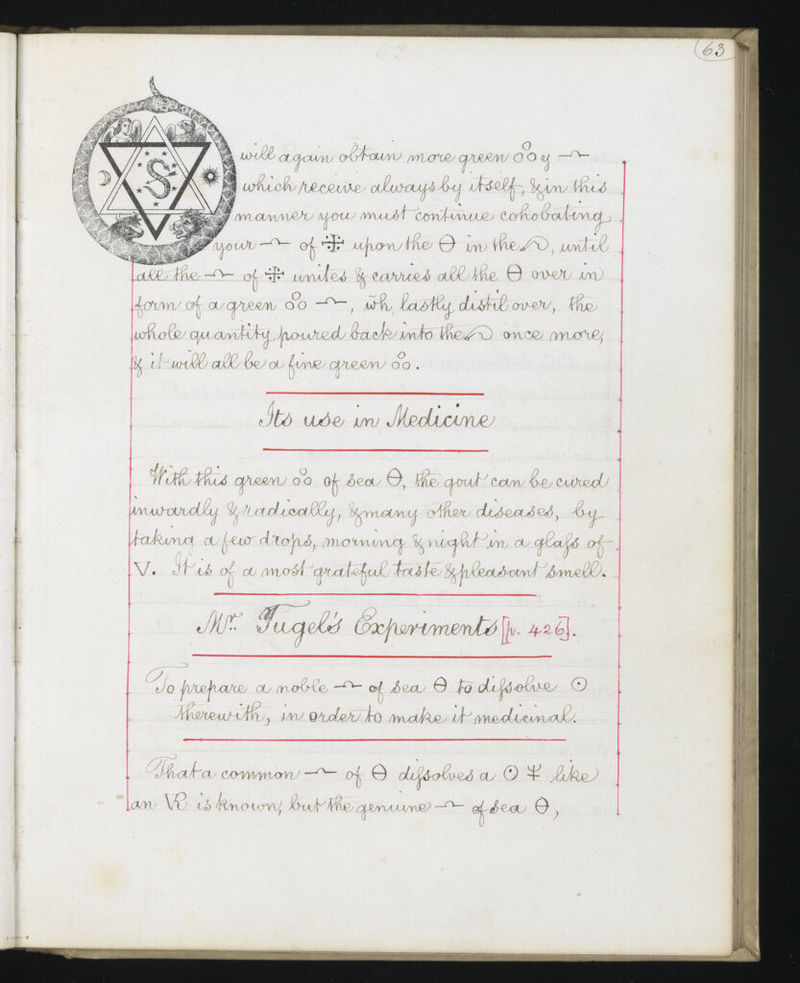 63
S
will again obtain more green o͝o y ⏦
which receive always by itself, & in this
manner you must continue cohobating
your ⏦ of 🜊 upon the 🜔 in the, until
all the ⏦ of 🜊 unites & carries all the 🜔 over in
form of a green o͝o ⏦, w̃h, lastly distil over, the
whole quantity poured back into the once more,
& it will all be a fine green o͝o.
Its use in Medicine
With this green o͝o of sea 🜔, the gout can be cured
inwardly & radically, & many other diseases, by
taking a few drops, morning & night in a glaſs of
🜄. It is of a most grateful taste & pleasant smell.
Mr. Fugel's Experiments [p. 426].
To prepare a noble ⏦ of sea 🜔 to diſsolve ☉
therewith, in order to make it medicinal.
That a common ⏦ of 🜔 diſsolves a ☉ like
an 🜆 is known, but the genuine ⏦ of sea 🜔,